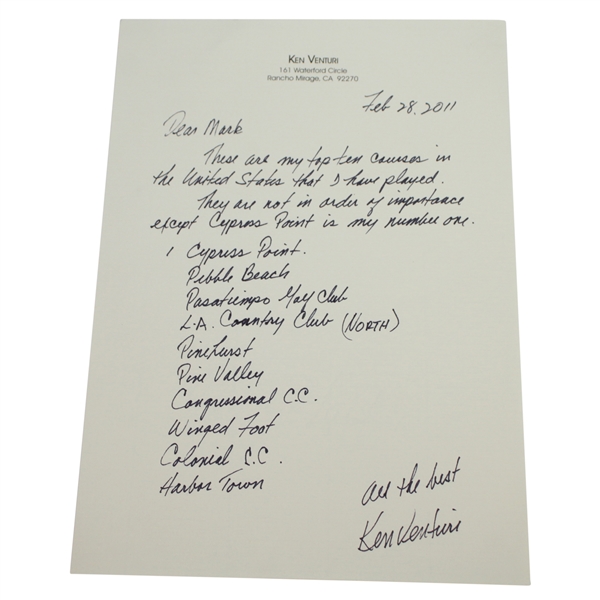 KEN VENTURI
161 Waterford Circle
Rancho Mirage, CA 92270
Feb 28, 2011
Dear Mark
These are my top ten courses in
the United States that I have played.
They are not in order of importance
except Cypress Point is my number one.
1 Cypress Point.
Pebble Beach
Pasatiempo Golf Club
L.A. Country Club (NORTH)
Pinehurst
Pine Valley
Congressional C.C.
Winged Foot
Colonial C.C.
Harbor Town
All the best
Ken Venturi